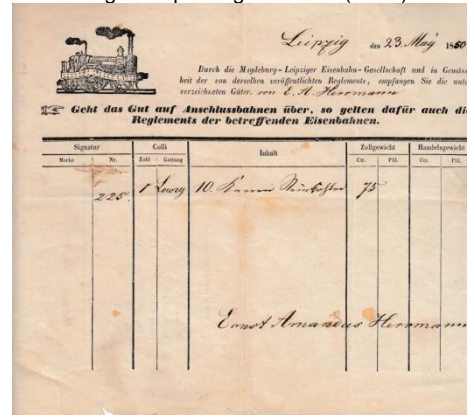 Leipzig den 23. May 1850
Durch die Magdeburg-Leipziger Eisenbahn-Gesellschaft und in Gemäss
heit der von derselben veröffentlichten Reglements, empfangen Sie die unte
verzeichneten Güter. von E. A. Herrmann
Geht das Gut auf Anschlussbahnen über, so gelten dafür auch die
Reglements der betreffenden Eisenbahnen.
Signatur Colli Inhalt Zollgewicht Handelsgewicht
Marke Nr. Zahl Gattung Ctr. Pfd. Ctr. Pfd.
225. 1 Lowry 10. Karren Steinkohlen 75
Ernst Amandus Herrmann